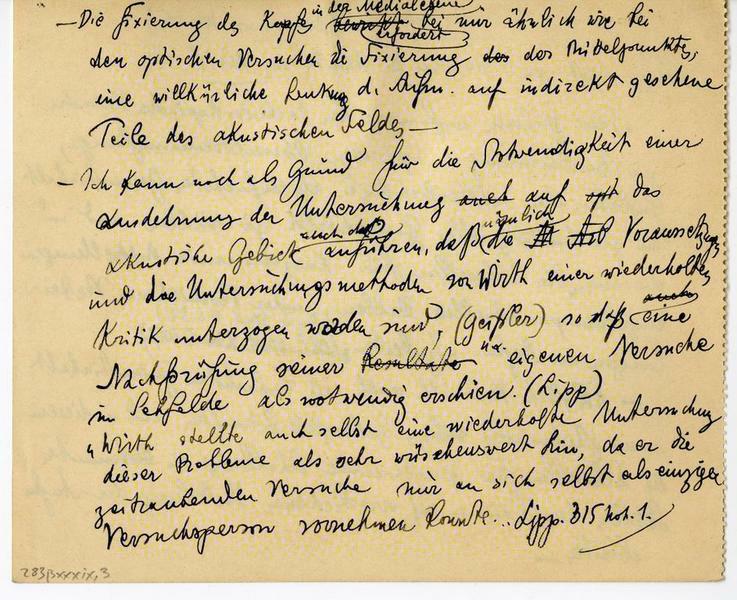 in der Medialebene
— Die Fixierung des Kopfs bei nur ähnlich wie bei
erfordert
den optischen Versuchen die Fixierung des des Mittelpunktes,
eine willkürliche Lenkung d. Aufm. auf indirekt gesehene
Teile des akustischen Feldes —
— Ich kann noch als Grund für die Notwendigkeit einer
Ausdehnung der Untersuchung auch auf das
auch daß nämlich
akustische Gebiet anführen, daß die Art Voraussetzungen
und die Untersuchungsmethoden von Wirth einer wiederholten
Kritik unterzogen worden sind, (Geißler) so daß eine
Nachprüfung seiner Resultate u. eigenen Versuche
im Sehfelde als notwendig erschien. (Lipp)
„Wirth stellte auch selbst eine wiederholte Untersuchung
dieser Probleme als sehr wünschenswert hin, da er die
zeitraubenden Versuche nur an sich selbst als einziger
Versuchsperson vornehmen konnte... Lipp. 315 Not. 1.
283βxxxix,3